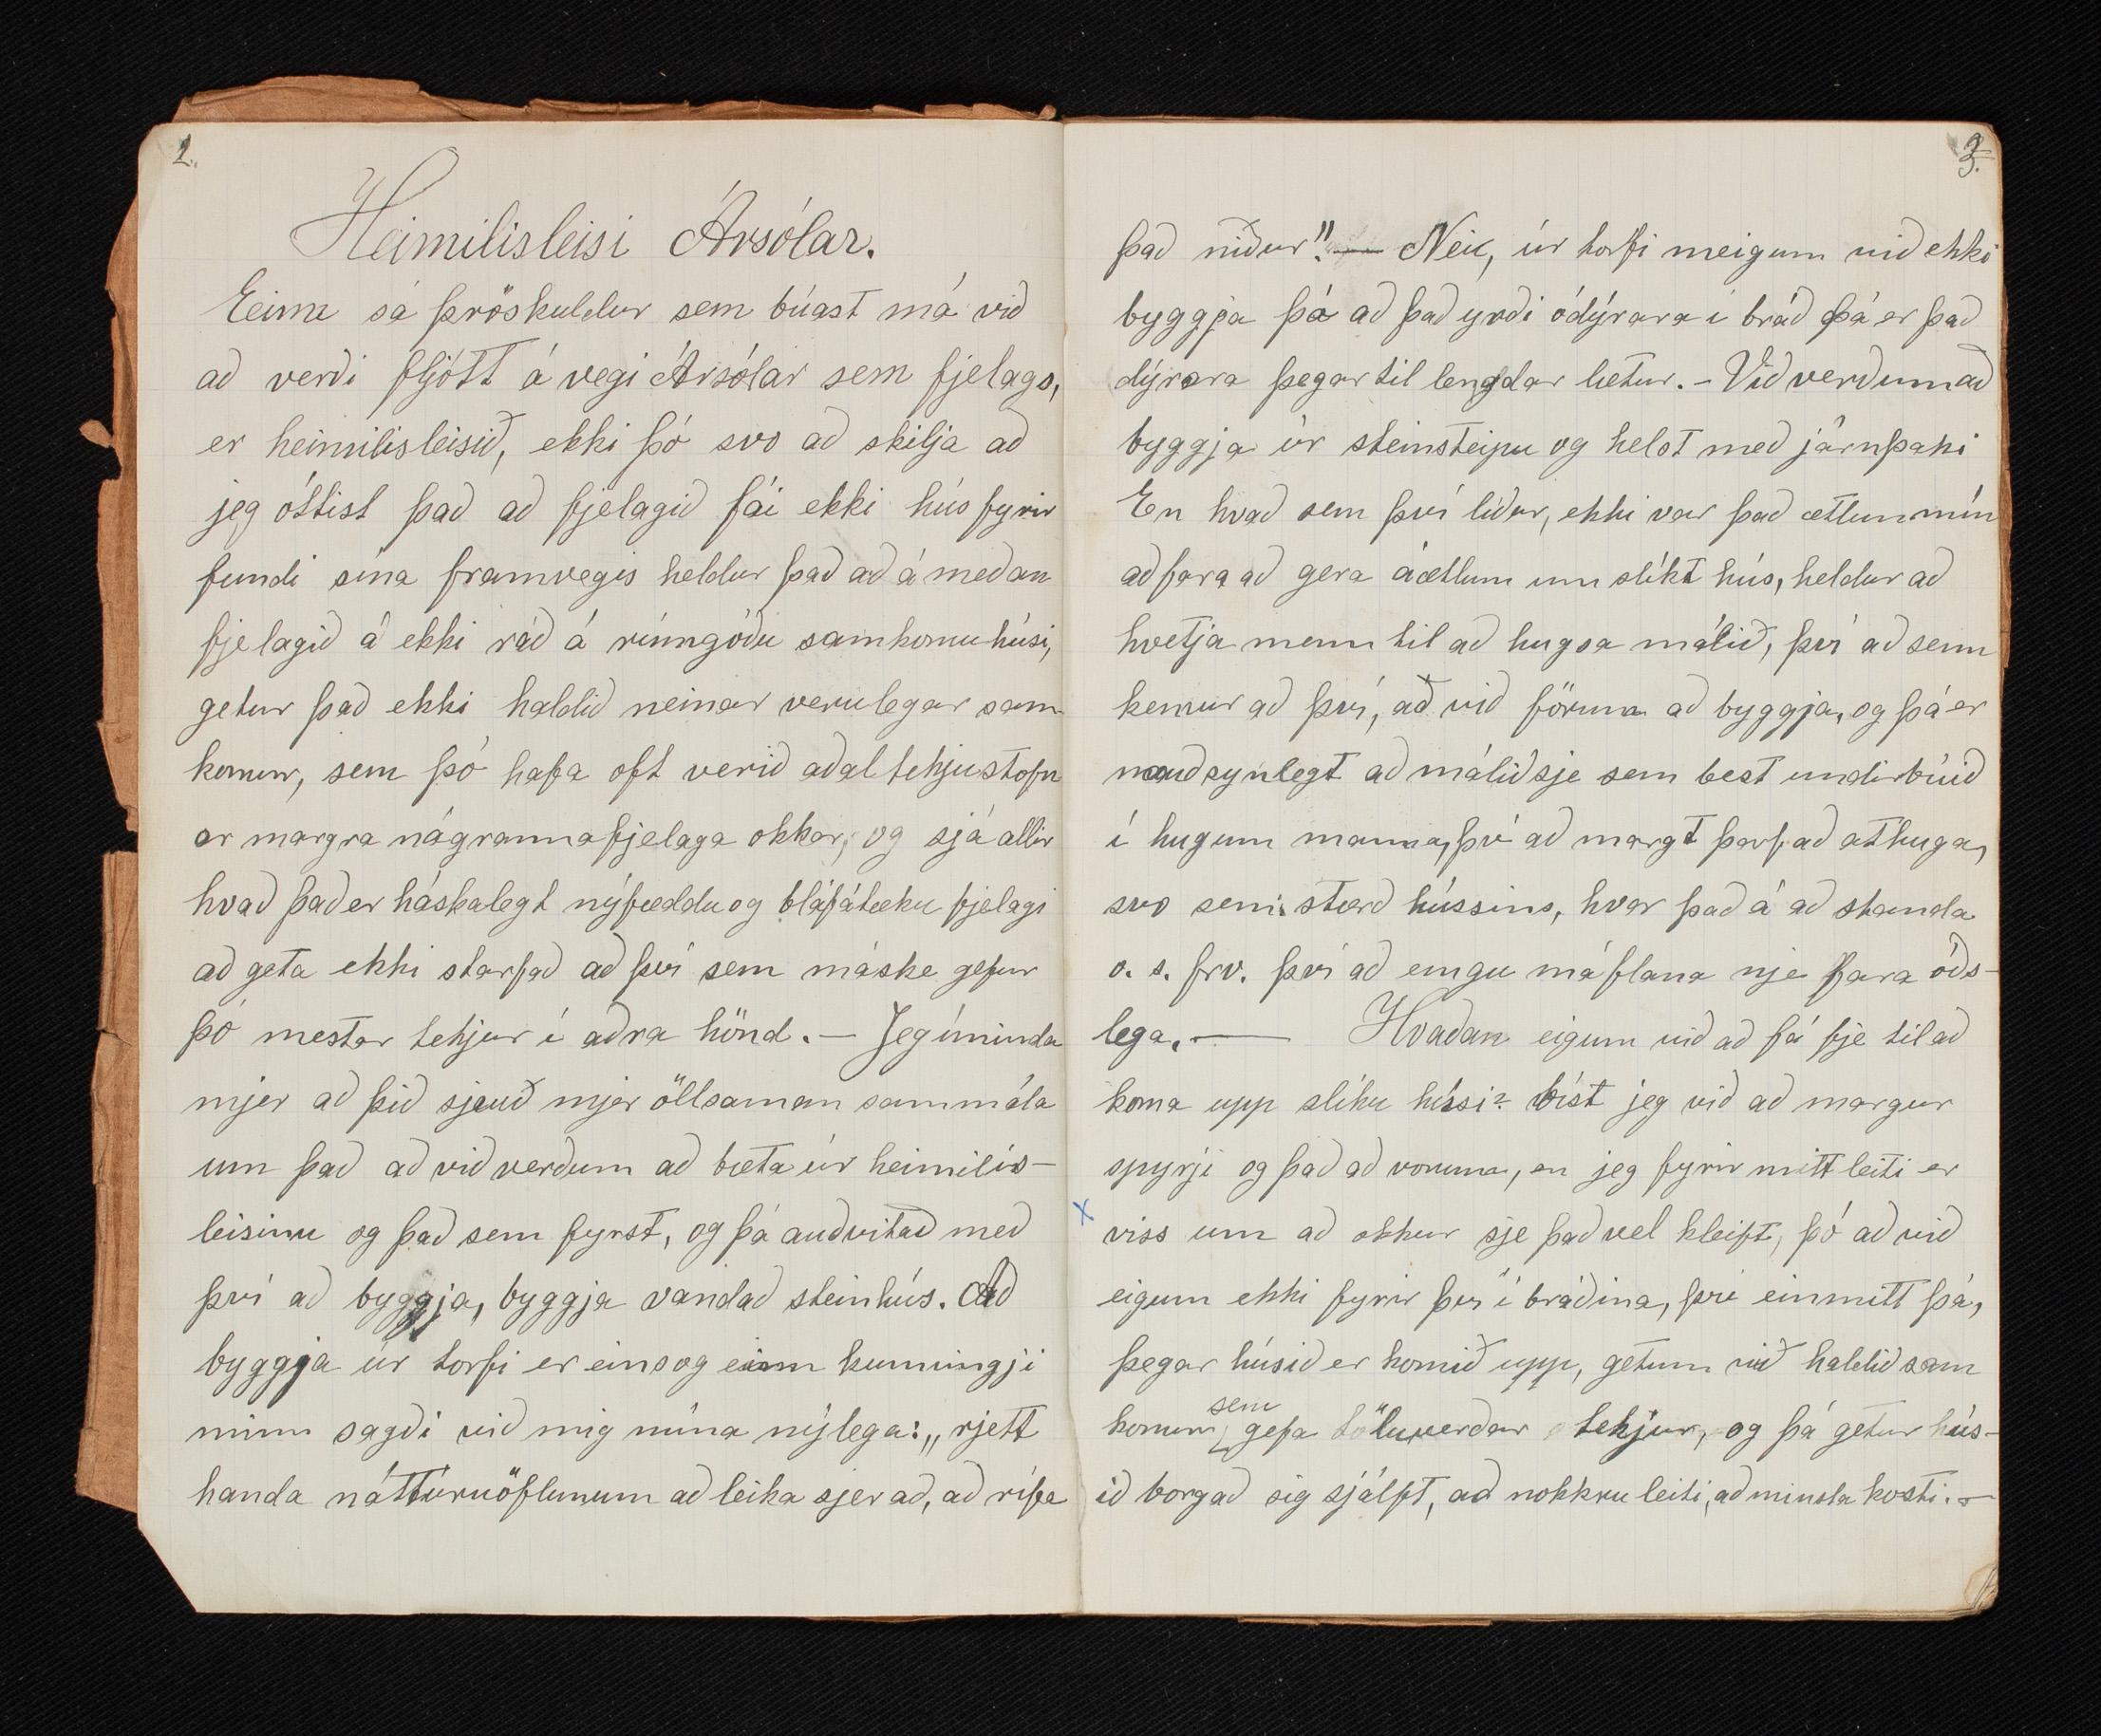 2.
Heimilisleisi Ársólar.
Einn sá þröskuldur sem búast má við
að verði fljótt á vegi Ársólar sem fjelags,
er heimilisleisið, ekki þó svo að skilja að
jeg óttist það að fjelagið fái ekki hús fyrir
fundi sína framvegis heldur það að á meðan
fjelagið á ekki ráð á rúmgóðu samkomuhúsi,
getur það ekki haldið neinar verulegar sam-
komur, sem þó hafa oft verið aðal tekjustofn
ar margra nágrannafjelaga okkar, og sjá allir
hvað það er háskalegt nýfæddu og bláfátæku fjelagi
að geta ekki starfað að því sem máske gefur
þó mestar tekjur í aðra hönd. — Jeg íminda
mjer að þið sjeuð mjer öllsaman sammála
um það að við verðum að bæta úr heimilis-
leisinu og það sem fyrst, og þá auðvitað með
því að byggja, byggja vandað steinhús. Að
byggja úr torfi er eins og einn kunningji
minn sagði við mig núna nýlega: „rjett
handa náttúruöflunum að leika sjer að, að rífa
3.
það niður". — Nei, úr torfi meigum við ekki
byggja þó að það yrði ódýrara í bráð þá er það
dýrara þegar til lengdar lætur. - Við verðum að
byggja úr steinsteipu og helst með járnþaki
En hvað sem því líður, ekki var það ætlun mín
að fara að gera áætlum um slíkt hús, heldur að
hvetja menn til að hugsa málið, því að senn
kemur að því, að við förum að byggja, og þá er
nauðsynlegt að málið sje sem best undirbúið
í hugum manna, því að margt þarf að athuga,
svo sem stærð hússins, hvar það á að standa
o. s. frv. því að eingu má flana nje fara óðs-
lega. — Hvaðan eigum við að fá fje til að
koma upp slíku húsi? bíst jeg við að margur
spyrji og það að vonum, en jeg fyrir mitt leiti er
x
viss um að okkur sje það vel kleift, þó að við
eigum ekki fyrir því í bráðina, því einmitt þá,
þegar húsið er komið upp, getum við haldið sam
sem
komur gefa töluverðar tekjur, og þá getur hús-
ið borgað sig sjálft, að nokkru leiti, að minsta kosti. —